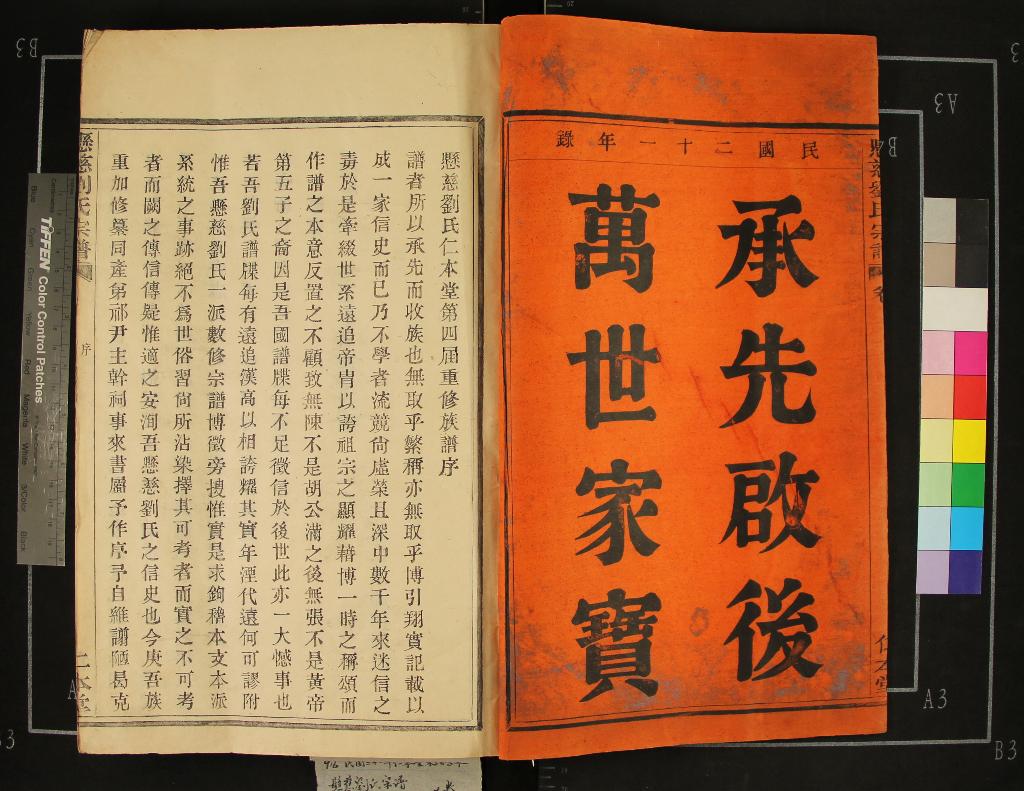 民國二十一年錄
承先啟後
萬世家寶
懸慈劉氏宗譜
卷
仁本堂
懸慈劉氏仁本堂第四屆重修族譜序
譜者所以承先而收族也無取乎繁稱亦無取乎博引翔實記載以
成一家信史而已乃不學者流競尙虛榮且深中數千年來迷信之
毒於是牽綴世系遠追帝冑以誇祖宗之顯耀藉博一時之稱頌而
作譜之本意反置之不顧致無陳不是胡公滿之後無張不是黃帝
第五子之裔因是吾國譜牒每不足徵信於後世此亦一大憾事也
若吾劉氏譜牒每有遠追漢高以相誇耀其實年湮代遠何可謬附
惟吾懸慈劉氏一派數修宗譜博徵旁搜惟實是求鉤稽本支本派
系統之事跡絕不爲世俗習尙所沾染擇其可考者而實之不可考
者而闕之傳信傳疑惟適之安洵吾懸慈劉氏之信史也今庚吾族
重加修纂同產弟祁尹主幹祠事來書屬予作序予自維謭陋曷克
懸慈劉氏宗譜
序
仁本堂
TIFFEN Color Control Patches
Blue
Cyan
Green
Yellow
Red
Magenta
White
3/Color
Black
A3
A3
B3
B3
B3